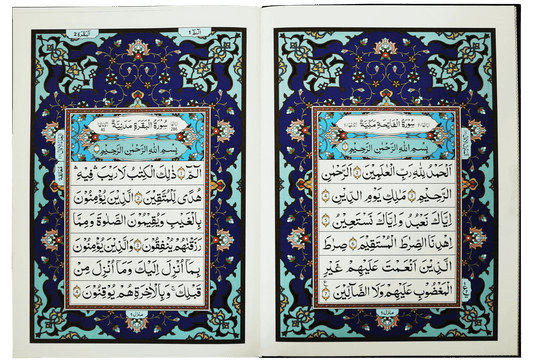 سُورَةُ الْفَاتِحَةِ مَكِّيَّةٌ
بِسْمِ اللهِ الرَّحْمٰنِ الرَّحِيْمِ
اَلْحَمْدُ لِلّٰهِ رَبِّ الْعٰلَمِيْنَ ۝ الرَّحْمٰنِ
الرَّحِيْمِ ۝ مٰلِكِ يَوْمِ الدِّيْنِ ۝
اِيَّاكَ نَعْبُدُ وَاِيَّاكَ نَسْتَعِيْنُ ۝
اِهْدِنَا الصِّرَاطَ الْمُسْتَقِيْمَ ۝ صِرَاطَ
الَّذِيْنَ اَنْعَمْتَ عَلَيْهِمْ غَيْرِ
الْمَغْضُوْبِ عَلَيْهِمْ وَلَا الضَّآلِّيْنَ ۝
البقرة ٢
الٓمّٓ ١
سُورَةُ الْبَقَرَةِ مَدَنِيَّةٌ
بِسْمِ اللهِ الرَّحْمٰنِ الرَّحِيْمِ
الٓمّٓ ۝ ذٰلِكَ الْكِتٰبُ لَا رَيْبَ فِيْهِ
هُدًى لِّلْمُتَّقِيْنَ ۝ الَّذِيْنَ يُؤْمِنُوْنَ
بِالْغَيْبِ وَيُقِيْمُوْنَ الصَّلٰوةَ وَمِمَّا
رَزَقْنٰهُمْ يُنْفِقُوْنَ ۝ وَالَّذِيْنَ يُؤْمِنُوْنَ
بِمَآ اُنْزِلَ اِلَيْكَ وَمَآ اُنْزِلَ مِنْ
قَبْلِكَ وَبِالْاٰخِرَةِ هُمْ يُوْقِنُوْنَ ۝